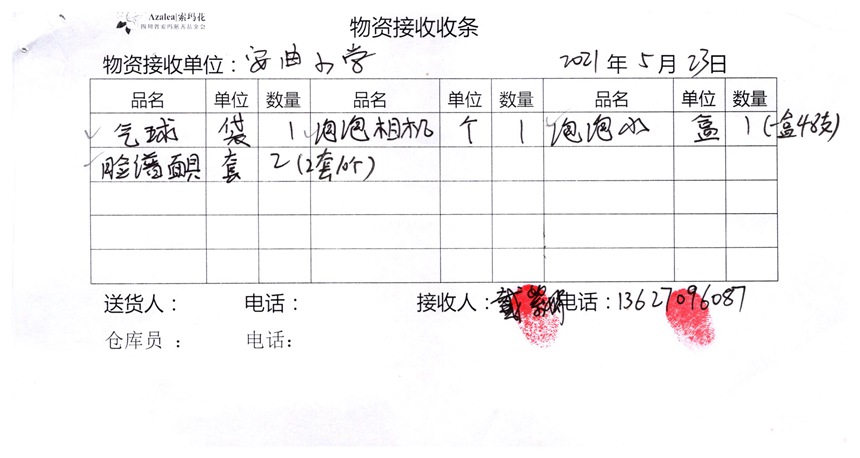 Azalea|索玛花
四川省索玛慈善基金会
物资接收收条
物资接收单位：安曲小学 2021年5月23日
品名 单位 数量 品名 单位 数量 品名 单位 数量
气球 袋 1 泡泡相机 个 1 泡泡水 盒 1(一盒48支)
脸谱面具 套 2(2套10个)
送货人： 电话： 接收人：戴 电话：13627096087
仓库员 ： 电话：